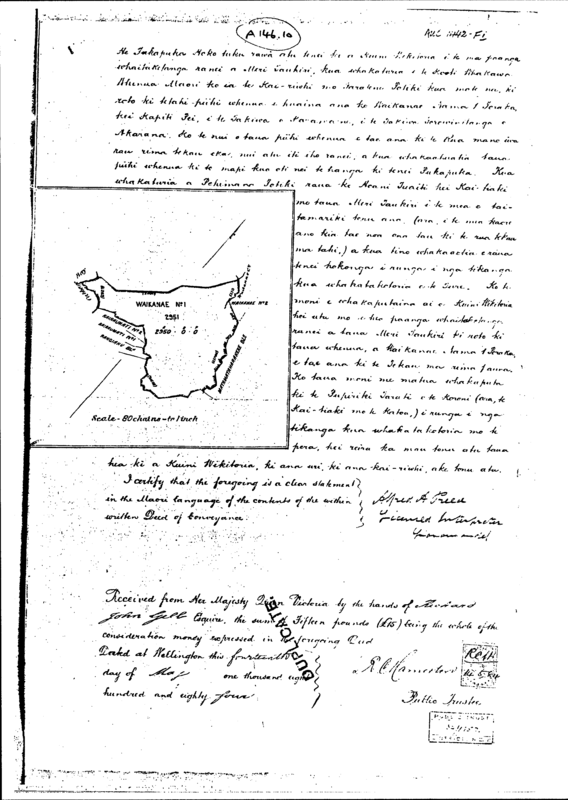 A 146.10
He Pukapuka Hoko tuku rawa atu tenei ki a Kuini Wikitoria i te ma paanga
whaitaketanga ranei a Meri Taukiri, kua whakaturia e te Kooti Whakawa
Whenua Maori ko ia te Kai-riiwhi mo kua mate nei, ki
roto ki tetahi piihi whenua e huaina ana ko Waikanae Nama 1 Poraka,
kei Kapiti Pei, i te Takiwa o i te Takiwa o
Akarana. Ko te nui o taua piihi whenua e tae ana ki te Rua mano iwa
rau rima tekau eka, nui atu iti iho ranei, a kua whakaaturia taua
piihi whenua ki te mapi kua oti nei te hanga ki tenei Pukapuka. Kua
whakaturia a raua ko Hoani Tuaiti hei Kai-tiaki
mo taua Meri Taukiri i te mea e tai-
tamariki tonu ana, (ara, i te
ano kia tae noa ona tau ki te rua tekau
ma tahi,) a kua tino whakaaetia e raua
tenei hokonga i runga i nga tikanga
kua whakatakotoria e te Ture. Ko te
moni e whakaputaina ai e Kuini Wikitoria
hei utu mo te paanga whaitaketanga
ranei a taua Meri Taukiri ki roto ki
taua whenua, a Waikanae Nama 1 Poraka,
e tae ana ki te Tekau ma rima pauna.
Ko taua moni me matua whakaputa
ki te Tupiriki Tarati o te Koroni (ara, te
Kai-tiaki mo te katoa,) i runga i nga
tikanga kua whakatakotoria mo te
pera, hei reira ka mau tonu atu taua
hea ki a Kuini Wikitoria, ki ana uri, ki ana kai-riiwhi, ake tonu atu.
WAIKANAE Nº1
2951
2950 - 0 - 0
WAIKANAE Nº 2
Scale - 80 chains - to 1 inch
I certify that the foregoing is a clear statement
in the Maori language of the contents of the within
written Deed of Conveyance.
Alfred A Freed
Licensed Interpreter
DUPLICATE.
Received from Her Majesty Queen Victoria by the hands of
John Gill Esquire, the sum Fifteen pounds (£15) being the whole of the
consideration money expressed in the foregoing Deed
Dated at Wellington this fourteenth
day of May one thousand eight
hundred and eighty four
R. C. Hamerton
Public Trustee
PUBLIC TRUST